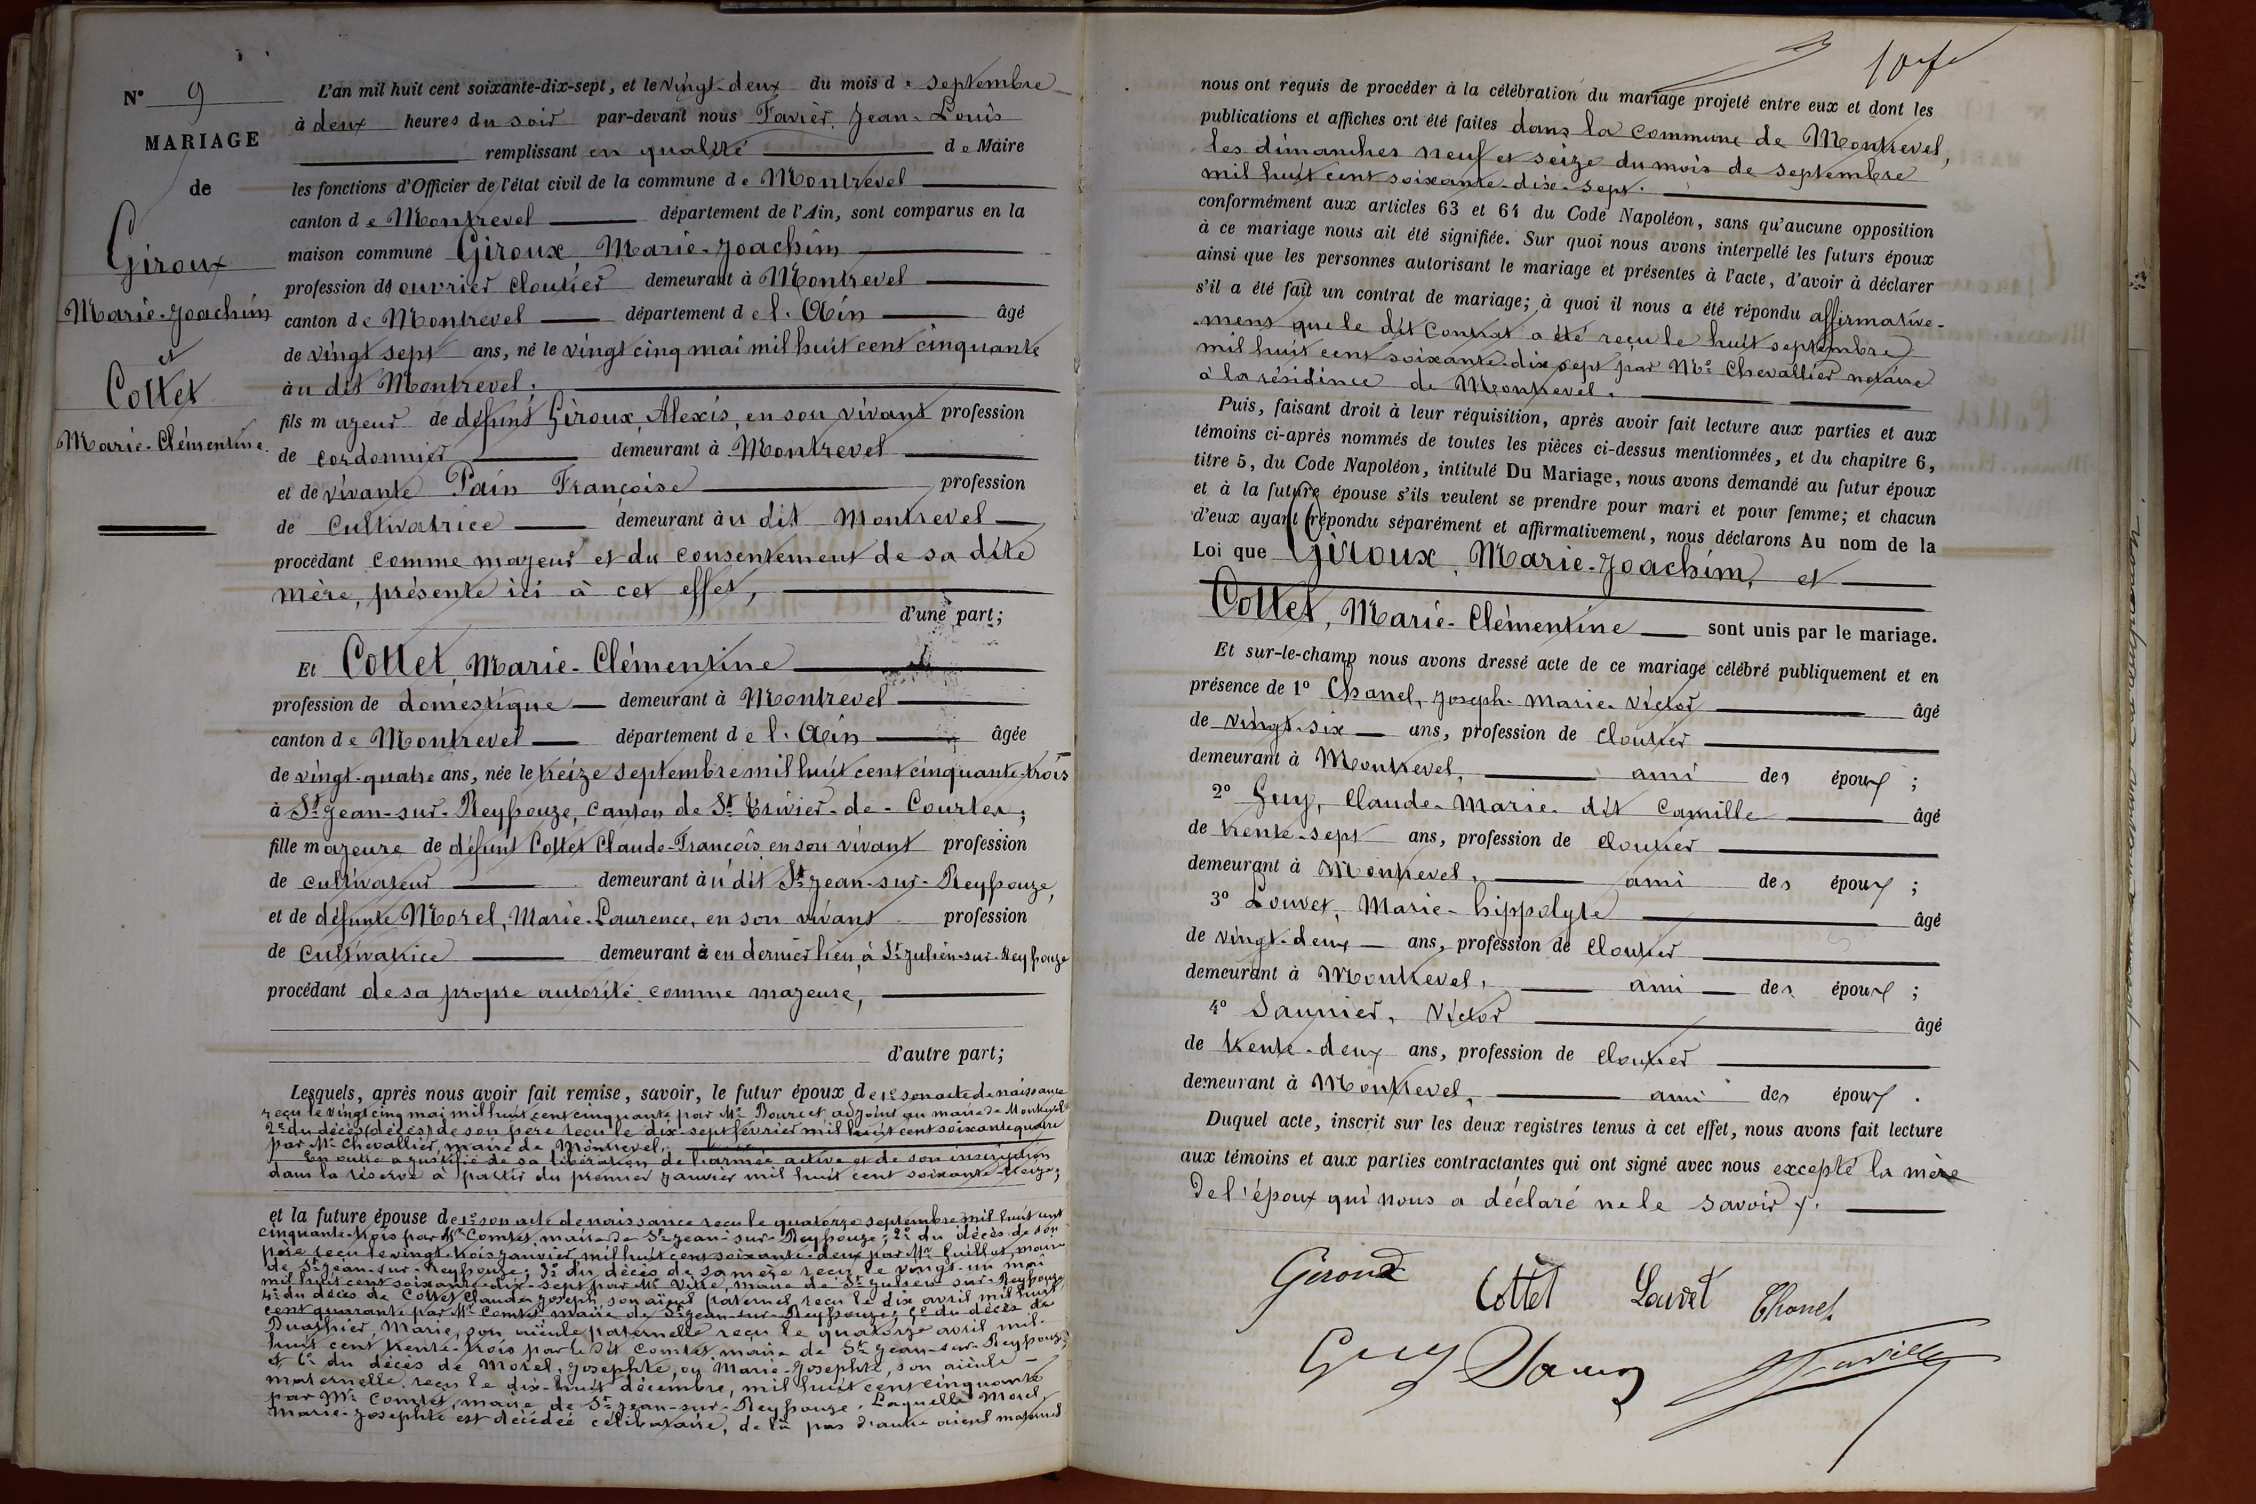 N° 9
MARIAGE
de
Giroux
Marie-Joachim
et
Cottet
Marie-Clémentine.
L'an mil huit cent soixante-dix-sept, et le vingt-deux du mois de septembre
à deux heures du soir par-devant nous Favier, Jean-Louis
remplissant en qualité de Maire
les fonctions d'Officier de l'état civil de la commune de Montrevel
canton de Montrevel département de l'Ain, sont comparus en la
maison commune Giroux, Marie-Joachim
profession d' ouvrier cloutier demeurant à Montrevel
canton de Montrevel département de l'Ain âgé
de vingt sept ans, né le vingt cinq mai mil huit cent cinquante
au dit Montrevel.
fils majeur de défunt Giroux, Alexis, en son vivant profession
de cordonnier demeurant à Montrevel
et de vivante Pain Françoise profession
de cultivatrice demeurant au dit Montrevel
procédant comme majeur et du consentement de sa dite
mère, présente ici à cet effet,
d'une part;
Et Cottet, Marie-Clémentine
profession de domestique demeurant à Montrevel
canton de Montrevel département de l'Ain âgée
de vingt-quatre ans, née le treize septembre mil huit cent cinquante-trois
à St Jean-sur-Reyssouze, canton de St Trivier-de-Courtes,
fille majeure de défunt Cottet Claude-François en son vivant profession
de cultivateur demeurant au dit St Jean-sur-Reyssouze,
et de défunte Morel, Marie-Laurence, en son vivant profession
de cultivatrice demeurant à en dernier lieu, à St Julien-sur-Reyssouze
procédant de sa propre autorité comme majeure,
d'autre part;
Lesquels, après nous avoir fait remise, savoir, le futur époux de 1° son acte de naissance
reçu le vingt cinq mai mil huit cent cinquante par Mr Bourcet adjoint au maire de Montrevel
2° du décès (décès) de son père reçu le dix-sept février mil huit cent soixante quatre
par Mr Chevallier, maire de Montrevel;
En outre a justifié de sa libération de l'armée active et de son inscription
dans la réserve à partir du premier janvier mil huit cent soixante-treize;
et la future épouse de 1° son acte de naissance reçu le quatorze septembre mil huit cent
cinquante-trois par Mr Comtet, maire de St Jean-sur-Reyssouze; 2° du décès de son
père reçu le vingt-trois janvier mil huit cent soixante-deux par Mr Guillot, maire
de St Jean-sur-Reyssouze; 3° du décès de sa mère reçu le vingt-un mai
mil huit cent soixante-dix-sept par Mr maire de St Julien-sur-Reyssouze
4° du décès de Cottet Claude Joseph, son aïeul paternel reçu le dix avril mil huit
cent quarante par Mr Comtet maire de St Jean-sur-Reyssouze; 5° du décès de
Marie, son aïeule paternelle reçu le quatorze avril mil-
huit cent trente-trois par le dit Comtet, maire de St Jean-sur-Reyssouze
et 6° du décès de Morel, Josephte, ou Marie-Josephte, son aïeule
maternelle, reçu le dix-huit décembre, mil huit cent cinquante
par Mr Comtet, maire de St Jean-sur-Reyssouze. Laquelle Morel,
Marie-Josephte est décédée célibataire, de là pas d'autre aïeul maternel
nous ont requis de procéder à la célébration du mariage projeté entre eux et dont les
publications et affiches ont été faites dans la commune de Montrevel,
les dimanches neuf et seize du mois de septembre
mil huit cent soixante-dix-sept.
conformément aux articles 63 et 64 du Code Napoléon, sans qu'aucune opposition
à ce mariage nous ait été signifiée. Sur quoi nous avons interpellé les futurs époux
ainsi que les personnes autorisant le mariage et présentes à l'acte, d'avoir à déclarer
s'il a été fait un contrat de mariage; à quoi il nous a été répondu affirmative-
ment que le dit contrat a été reçu le huit septembre
mil huit cent soixante-dix sept par Me Chevallier notaire
à la résidence de Montrevel.
Puis, faisant droit à leur réquisition, après avoir fait lecture aux parties et aux
témoins ci-après nommés de toutes les pièces ci-dessus mentionnées, et du chapitre 6,
titre 5, du Code Napoléon, intitulé Du Mariage, nous avons demandé au futur époux
et à la future épouse s'ils veulent se prendre pour mari et pour femme; et chacun
d'eux ayant répondu séparément et affirmativement, nous déclarons Au nom de la
Loi que Giroux, Marie-Joachim, et
Cottet, Marie-Clémentine sont unis par le mariage.
Et sur-le-champ nous avons dressé acte de ce mariage célébré publiquement et en
présence de 1° Chanel, Joseph-Marie-Victor âgé
de vingt-six ans, profession de cloutier
demeurant à Montrevel, ami des époux;
2° Guy, Claude-Marie-dit Camille âgé
de trente-sept ans, profession de cloutier
demeurant à Montrevel, ami des époux;
3° Louvet, Marie-hippolyte âgé
de vingt-deux ans, profession de cloutier
demeurant à Montrevel, ami des époux;
4° Saunier, Victor âgé
de trente-deux ans, profession de cloutier
demeurant à Montrevel, ami des époux.
Duquel acte, inscrit sur les deux registres tenus à cet effet, nous avons fait lecture
aux témoins et aux parties contractantes qui ont signé avec nous excepté la mère
de l'époux qui nous a déclaré ne le savoir.
Giroud
Cottet
Louvet
Chanel
Guy